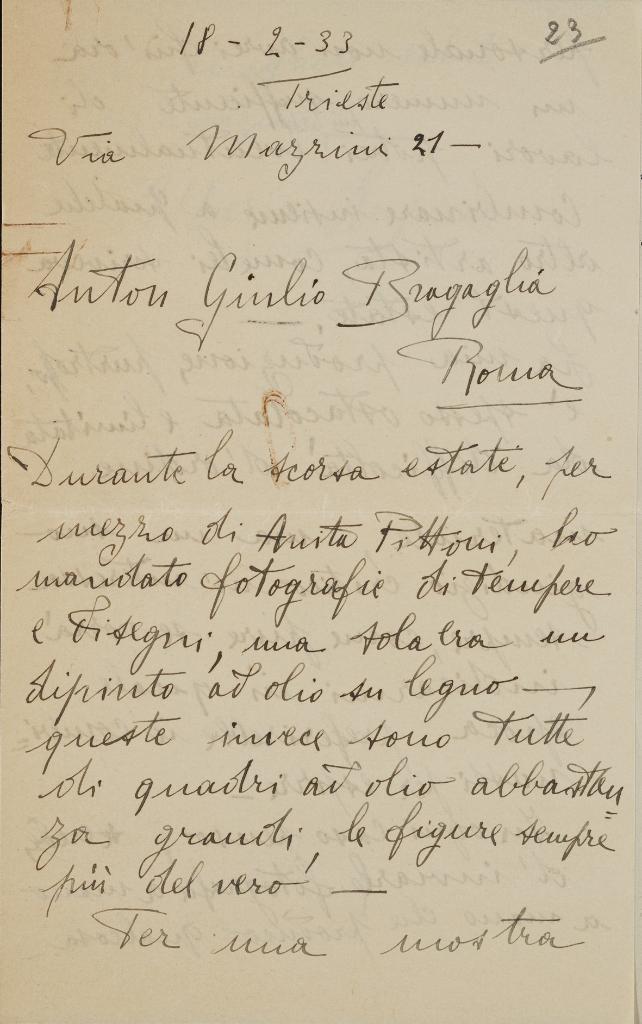 23
18-2-33
Trieste
Via Mazzini 21 —
Anton Giulio Bragaglia
Roma
Durante la scorsa estate, per
mezzo di Anita Pittoni, ho
mandato fotografie di tempere
e disegni, una sola era un
dipinto ad olio su legno —,
queste invece sono tutte
di quadri ad olio abbastan=
za grandi, le figure sempre
più del vero. —
Per una mostra